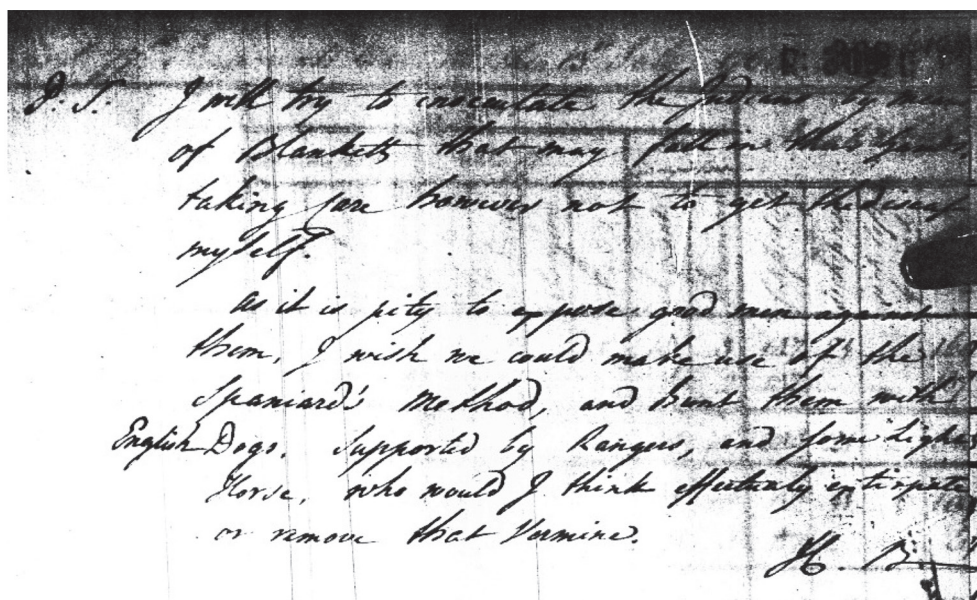 P. S. I will try to inoculate the Indians by mean
of Blanketts that may fall in their Hands,
taking care however not to get the disease
myself.
as it is pity to oppose good men against
them, I wish we could make use of the
Spaniard's Method, and hunt them with
English Dogs. Supported by Rangers, and some Light
Horse, who would I think effectualy extirpate
or remove that Vermine.
H. B